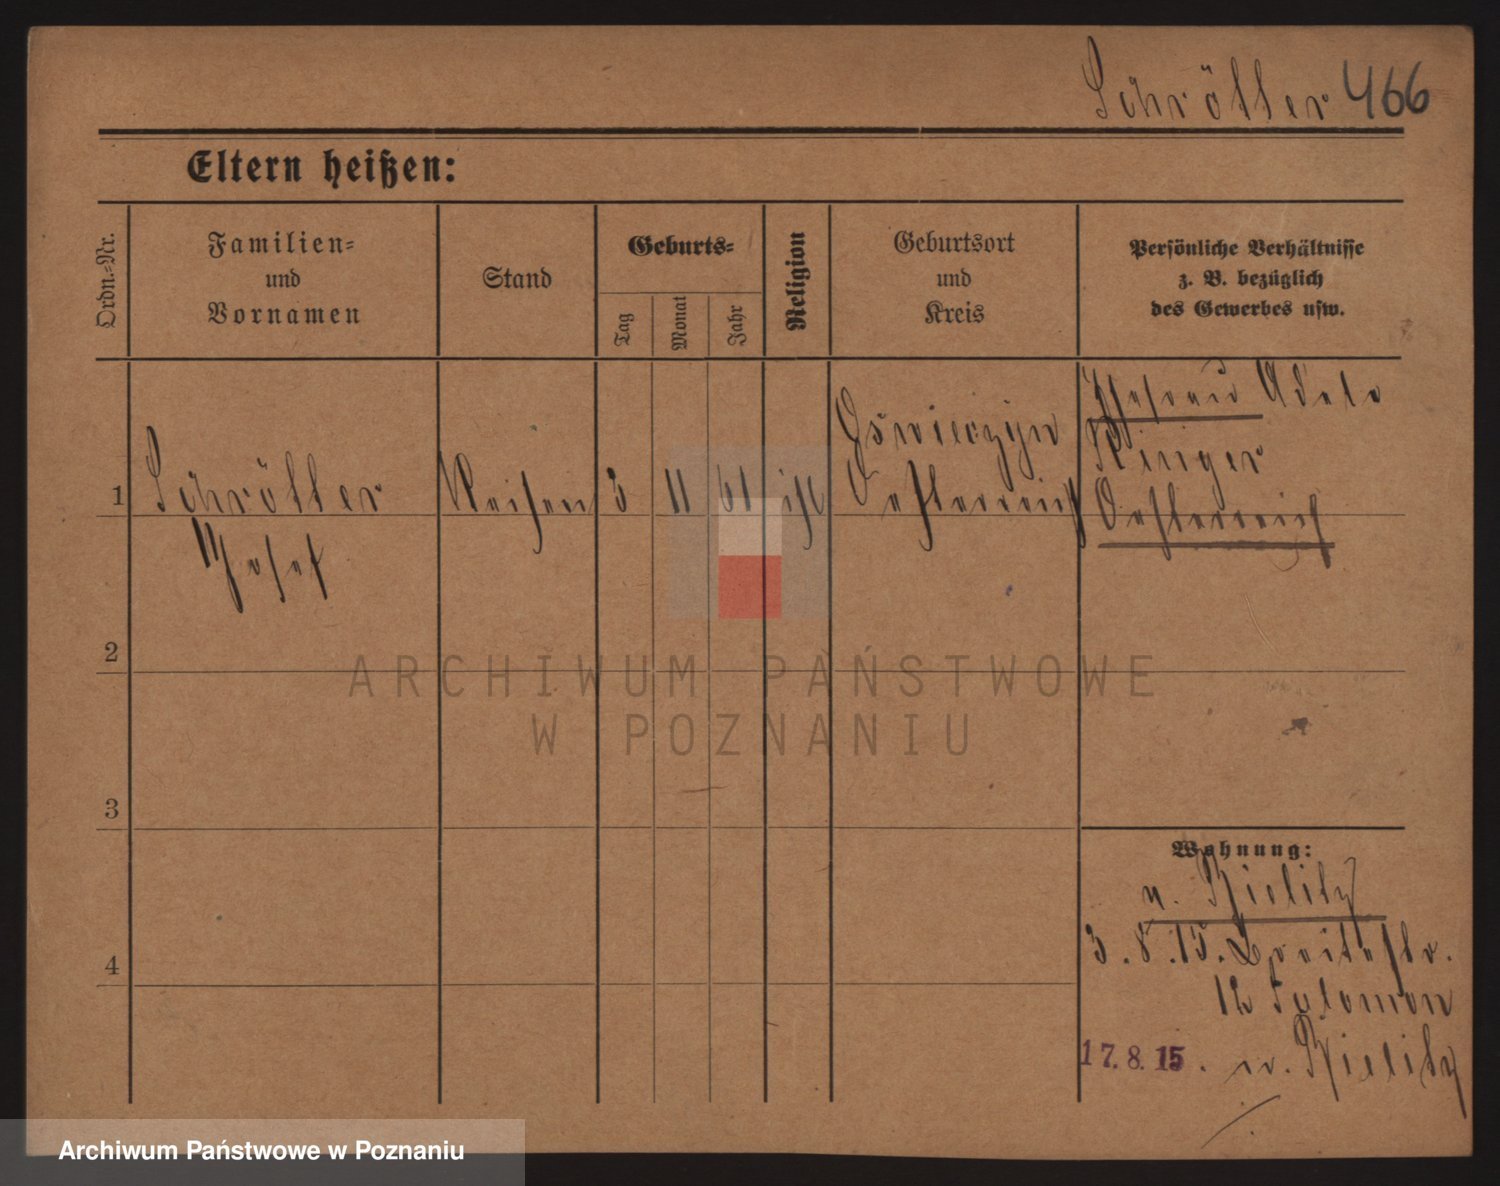 Schrötter 466
Eltern heißen:
Ordn.-Nr.
Familien-
und
Vornamen
Stand
Geburts-
Tag
Monat
Jahr
Religion
Geburtsort
und
Kreis
Persönliche Verhältnisse
z. B. bezüglich
des Gewerbes usw.
1
Schrötter
Josef
Reisen
3
11
61
isr
Oswieczyn
Oesterreich
Ehefrau Adele
Ringer
Oesterreich
2
3
4
Wohnung:
v. Bielitz
3.8.15. Breitestr.
12 Salomon
17.8.15. n. Bielitz
ARCHIWUM PAŃSTWOWE
W POZNANIU
Archiwum Państwowe w Poznaniu